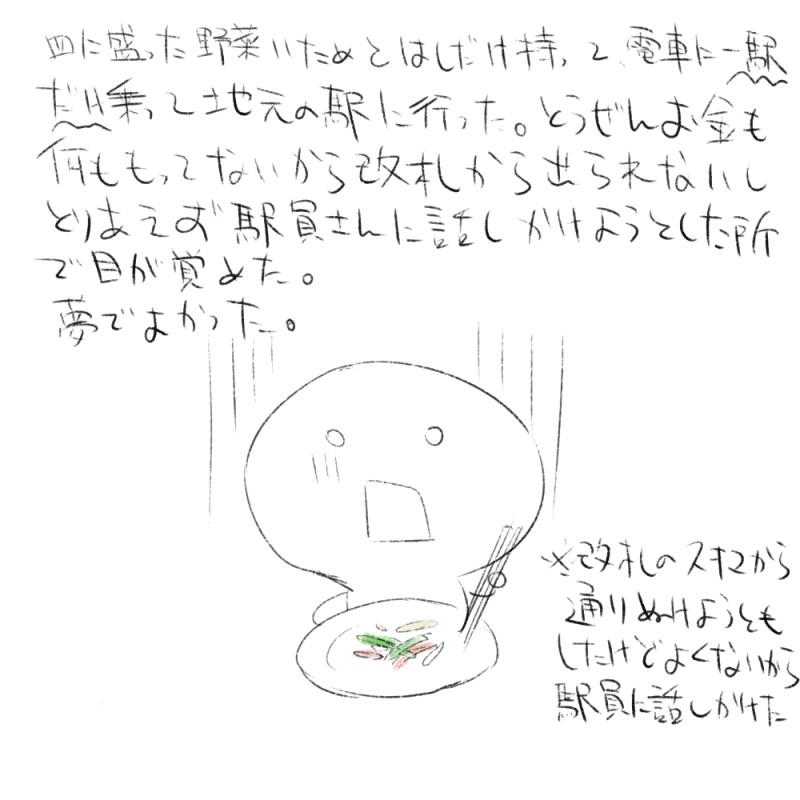 皿に盛った野菜いためとはしだけ持って、電車に一駅
だけ乗って地元の駅に行った。とうぜんお金も
何ももってないから改札から出られないし
とりあえず駅員さんに話しかけようとした所
で目が覚めた。
夢でよかった。
※改札のスキマから
通りぬけようとも
したけどよくないから
駅員に話しかけた